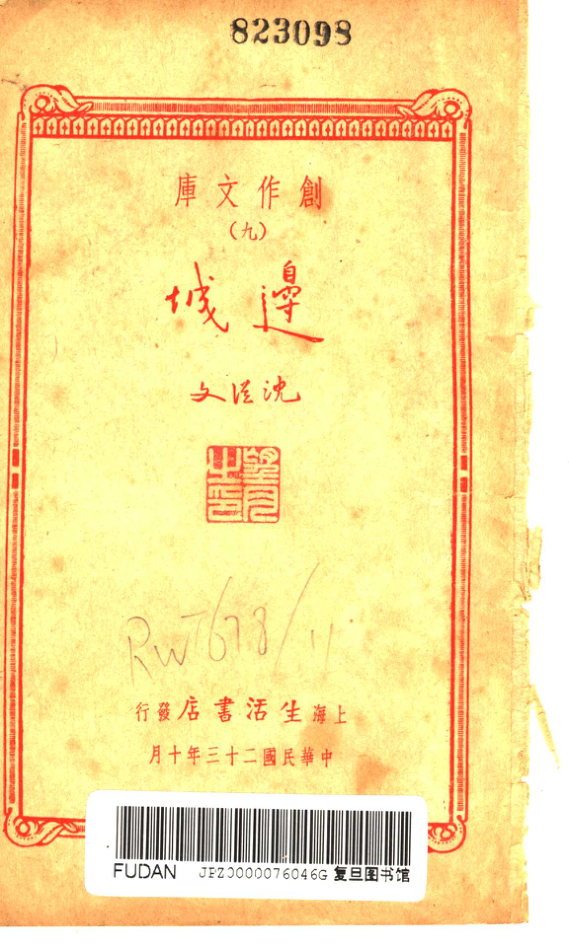 823098
創作文庫
(九)
邊城
沈從文
RWT678/11
上海生活書店發行
中華民國二十三年十月
FUDAN JPZ0000076046G 复旦图书馆